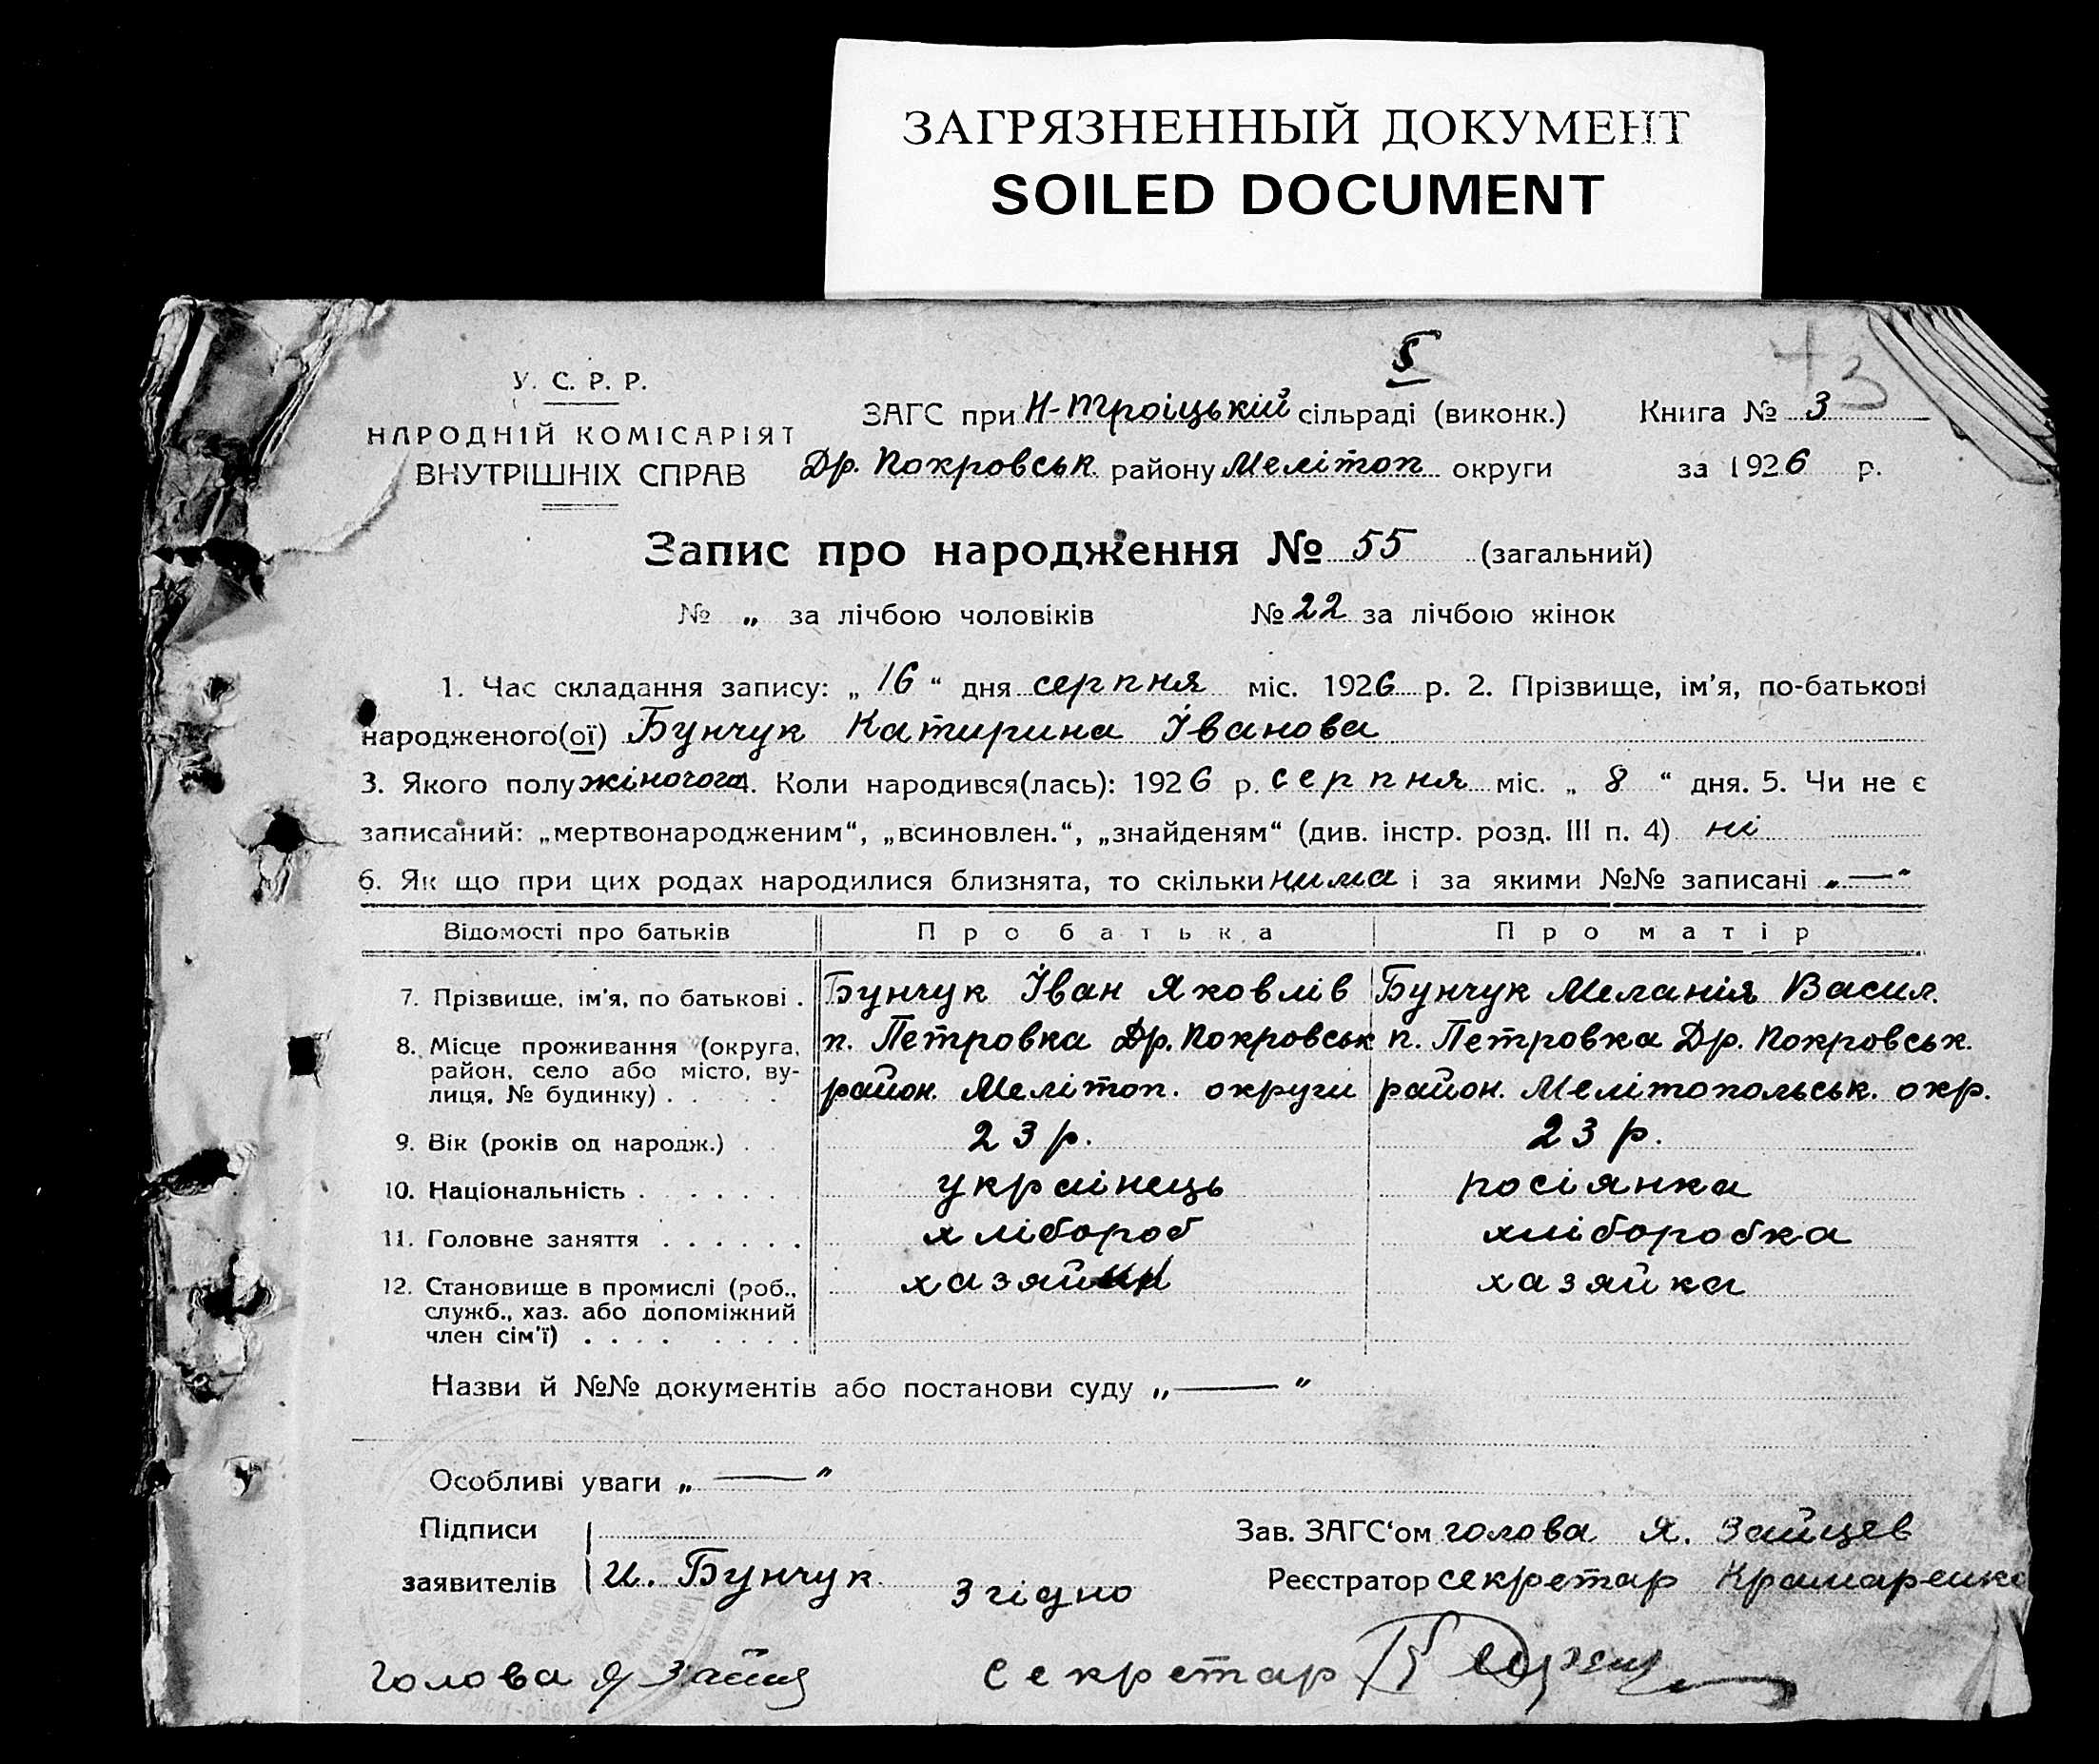 ЗАГРЯЗНЕННЫЙ ДОКУМЕНТ
SOILED DOCUMENT
43
У. С. Р. Р.
НАРОДНІЙ КОМІСАРІЯТ
ВНУТРІШНІХ СПРАВ
ЗАГС при Н-Троіцькій сільраді (виконк.) Книга № 3
Др. Покровськ. району Мелітоп округи за 1926 р.
Запис про народження № 55 (загальний)
№ „ за лічбою чоловіків № 22 за лічбою жінок
1. Час складання запису: „ 16 “ дня серпня міс. 1926 р. 2. Прізвище, ім'я, по-батькові
народженого(ої) Бунчук Катирина Іванова
3. Якого полу жіночого 4. Коли народився(лась): 1926 р. серпня міс. „ 8 “ дня. 5. Чи не є
записаний: „мертвонародженим“, „всиновлен.“, „знайденям“ (див. інстр. розд. III п. 4) ні
6. Як що при цих родах народилися близнята, то скільки нима і за якими №№ записані „—“
Відомості про батьків Про батька Про матір
7. Прізвище, ім'я, по батькові . Бунчук Іван Яковлів Бунчук Меланія Васил.
8. Місце проживання (округа, п. Петровка Др. Покровськ п. Петровка Др. Покровськ.
район, село або місто, ву-
лиця, № будинку) . . . . район. Мелітоп. округи район. Мелітопольськ. окр.
9. Вік (років од народж.) . . 23 р. 23 р.
10. Національність . . . . . . украінець росіянка
11. Головне заняття . . . . . . хлібороб хліборобка
12. Становище в промислі (роб., хазяйин хазяйка
служб., хаз. або допоміжний
член сім'ї) . . . . . . . .
Назви й №№ документів або постанови суду „—“
Особливі уваги „—“
Підписи Зав. ЗАГС‘ом голова Я. Зайцев
заявителів И. Бунчук Реєстратор секретар Крамаренко
Згідно
Голова Я Зайц Секретар